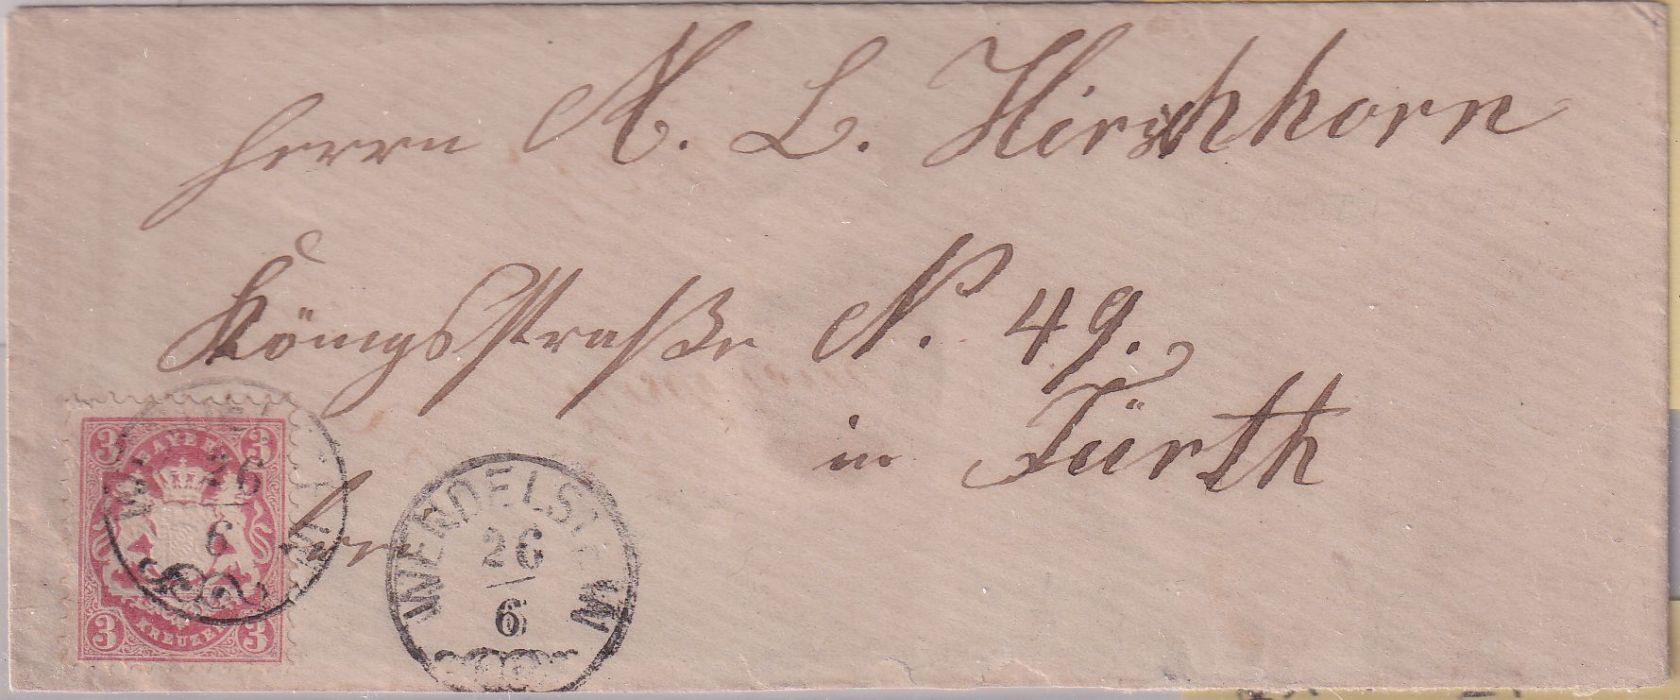 Herrn M. L. Hirschhorn
Königsstraße N. 49.
in Fürth
3 BAYERN 3
3 KREUZER 3
26
6
WENDELSTEIN
26
6